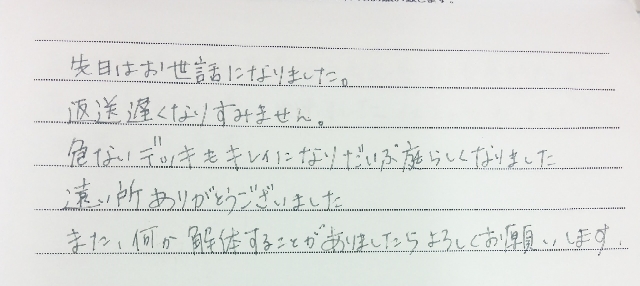 先日はお世話になりました。
返送遅くなりすみません。
危ないデッキもキレイになりだいぶ庭らしくなりました
遠い所ありがとうございました
また、何か解体することがありましたらよろしくお願いします。